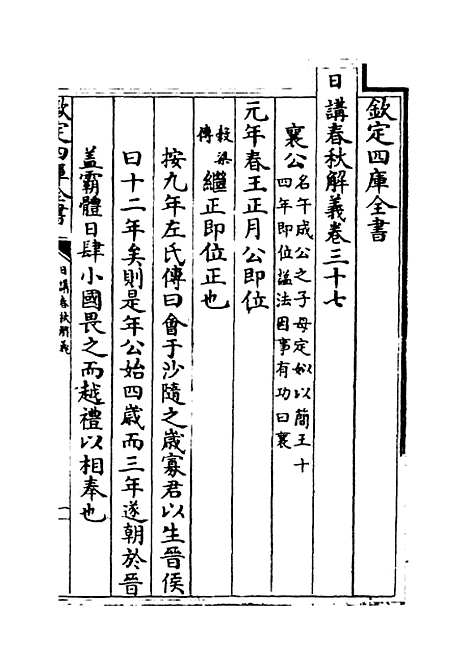 欽定四庫全書
日講春秋解義卷三十七
襄公名午成公之子母定姒以簡王十
四年即位諡法因事有功曰襄
元年春王正月公即位
穀梁
傳
繼正即位正也
按九年左氏傳曰會于沙隨之歲寡君以生晉侯
曰十二年矣則是年公始四歲而三年遂朝於晉
蓋霸體日肆小國畏之而越禮以相奉也
欽定四庫全書
日講春秋解義
一